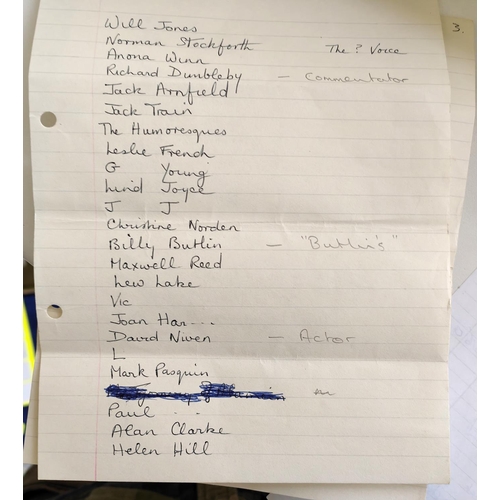 3.
Will Jones
Norman Stockforth The ? Voice
Anona Winn
Richard Dumbleby - Commentator
Jack Arnfield
Jack Train
The Humoresques
Leslie French
G Young
Lind Joyce
J J
Christine Norden
Billy Butlin - "Butlin's"
Maxwell Reed
Lew Lake
Vic
Joan Har...
David Niven - Actor
L
Mark Pasquin
Paul ...
Alan Clarke
Helen Hill